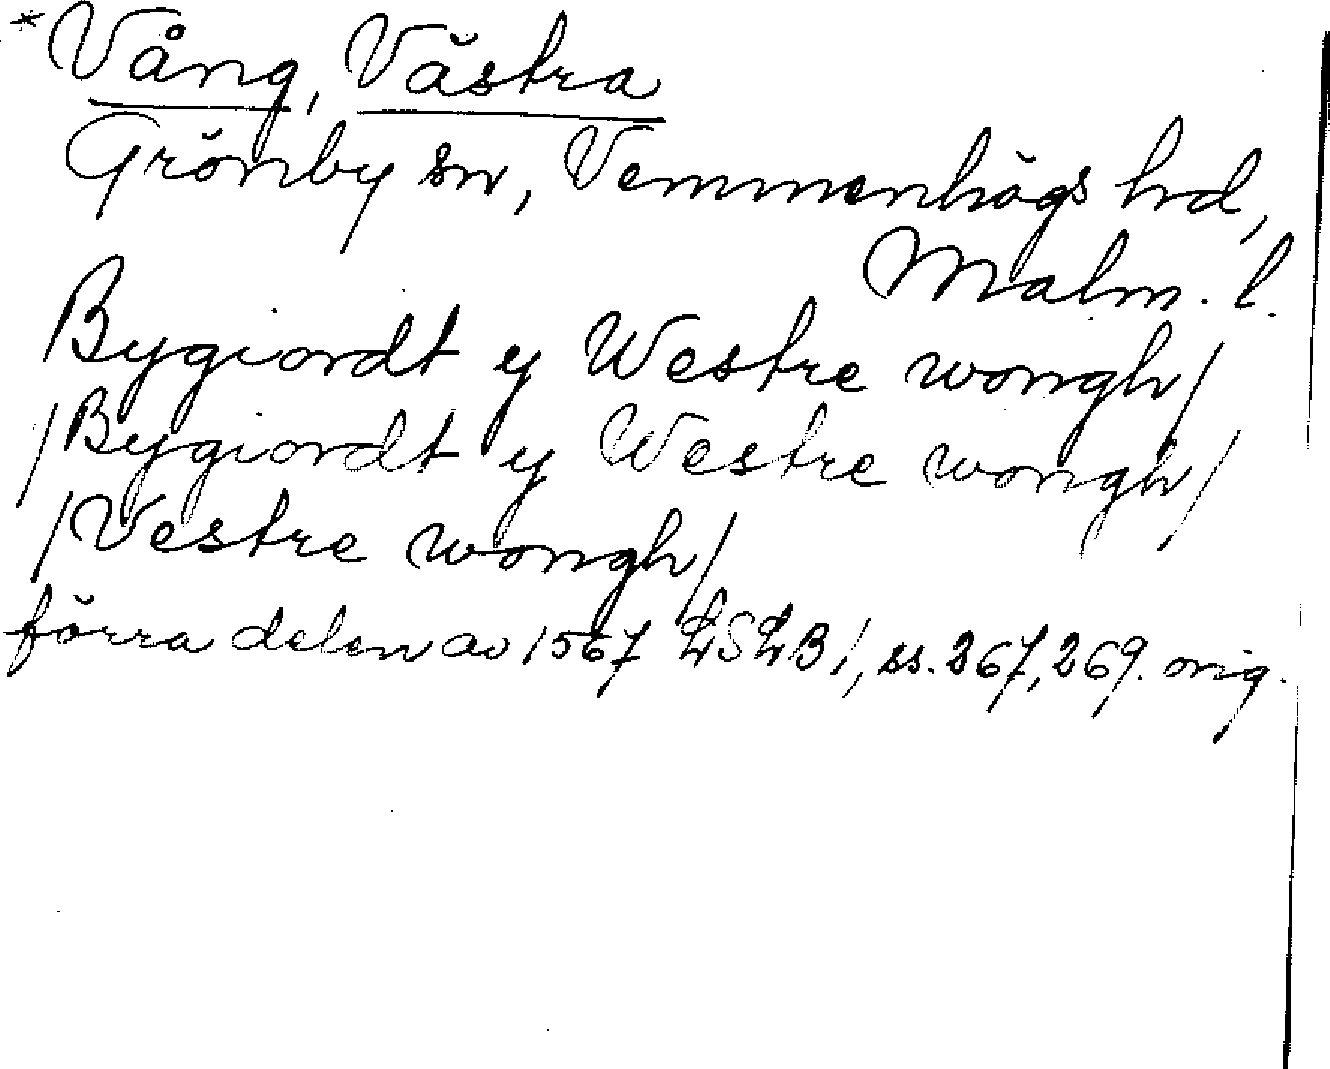 *Vång, Västra
Grönby sn, Vemmenhögs hd,
Malm. l.
Bygiordt y Westre wongh/
/Bygiordt y Westre wongh/
/Vestre wongh/
förra delen av 1567 LSLB 1, ss. 267, 269. orig.